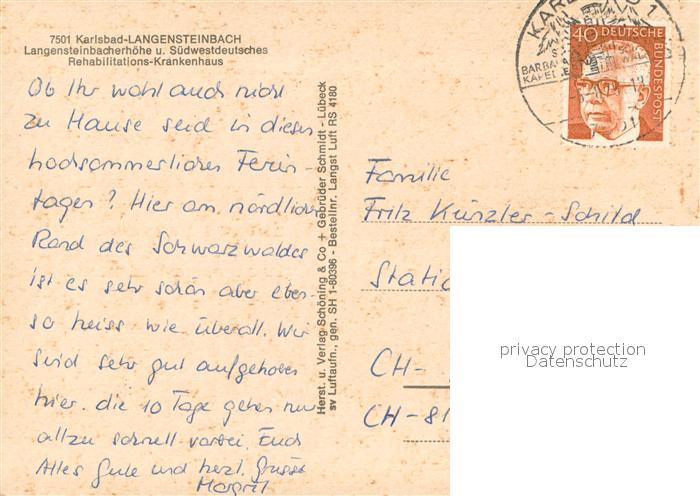 7501 Karlsbad-LANGENSTEINBACH
Langensteinbacherhöhe u. Südwestdeutsches
Rehabilitations-Krankenhaus
Ob Ihr wohl auch nicht
zu Hause seid in diesen
hochsommerlichen Ferien-
tagen? Hier am nördlichen
Rand des Schwarzwaldes
ist es sehr schön aber eben-
so heiss wie überall. Wir
sind sehr gut aufgehoben
hier. die 10 Tage gehen nur
allzu schnell vorbei. Euch
Alles Gute und herzl. Grüsse
Margrit
Herst. u. Verlag Schöning & Co + Gebrüder Schmidt - Lübeck
sv Luftaufn., gen. SH 1-80396 - Bestellnr. Langst Luft RS 4180
KARLSBAD 1
BARBARA
KAPELLE
40 DEUTSCHE
BUNDESPOST
Familie
Fritz Künzler-Schild
Static
CH-
CH-81
privacy protection
Datenschutz